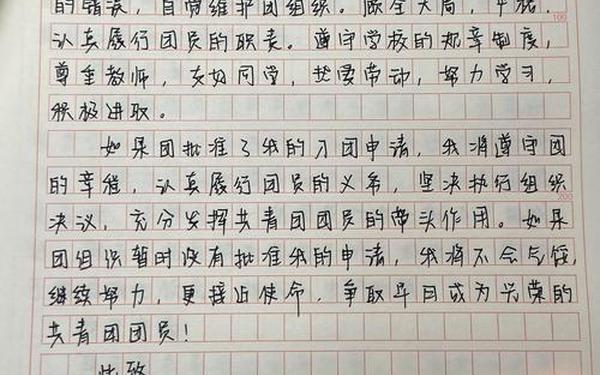 的错误，自觉维护团组织。顾全大局，
认真履行团员的职责。遵守学校的规章制度，
尊重教师，友如同学，热爱劳动，努力学习，
积极进取。
如果团批准了我的入团申请，我将遵守团
的章程，认真履行团员的义务，坚决执行组织
决议，充分发挥共青团团员的带头作用。如果
团组织暂时没有批准我的申请，我将不会气馁，
继续努力，更接近使命，争取早日成为光荣的
共青团团员！
此致
100
200